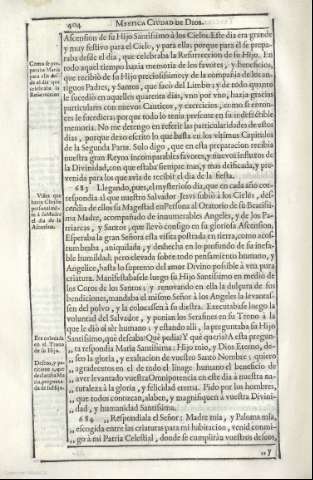 404 MYSTICA CIUDAD DE DIOS.
Ascension de su Hijo Santissimo à los Cielos. Este dia era grande
y muy festivo para el Cielo, y para ella; porque para él se prepa-
raba desde el dia, que celebraba la Resurreccion de su Hijo. En
todo aquel tiempo hazia memoria de los favores, y beneficios,
que recibiò de su Hijo preciosissimo; y de la compañia de los an-
tiguos Padres, y Santos, que sacò del Limbo; y de todo quanto
le sucediò en aquellos quarenta dias, uno por uno, hazia gracias
particulares con nuevos Canticos, y exercicios, como si enton-
ces le sucediera; porque todo lo tenia presente en su indefectible
memoria. No me detengo en referir las particularidades de estos
dias, porque dexo escrito lo que basta en los ultimos Capitulos
de la Segunda Parte. Solo digo, que en esta preparacion recibia
nuestra gran Reyna incomparables favores, y nuevos influxos de
la Divinidad, con que estaba siempre mas, y mas deificada, y pre-
venida para los que avia de recibir el dia de la fiesta.
683 Llegando, pues, el mysterioso dia, que en cada año cor-
respondia al que nuestro Salvador Jesus subiò à los Cielos, des-
cendia de ellos su Magestad en Persona al Oratorio de su Beatissi-
ma Madre, acompañado de innumerables Angeles, y de los Pa-
triarcas, y Santos, que llevò consigo en su gloriosa Ascension.
Esperaba la gran Señora esta visita postrada en tierra, como acos-
tumbraba, aniquilada, y deshecha en lo profundo de su inefa-
ble humildad; pero elevada sobre todo pensamiento humano, y
Angelico, hasta lo supremo del amor Divino possible à una pura
criatura. Manifestabasele luego su Hijo Santissimo en medio de
los Coros de los Santos; y renovando en ella la dulçura de sus
bendiciones, mandaba el mismo Señor à los Angeles la levantas-
sen del polvo, y la colocassen à su diestra. Executabase luego la
voluntad del Salvador, y ponian los Serafines en su Trono à la
que le diò el sèr humano; y estando allí, la preguntaba su Hijo
Santissimo, què deseaba? Què pedia? Y què queria? A esta pregun-
„ ta respondia Maria Santissima: Hijo mio, y Dios Eterno, de-
„ seo la gloria, y exaltacion de vuestro Santo Nombre; quiero
„ agradeceros en el de todo el linage humano el beneficio de
„ aver levantado vuestra Omnipotencia en este dia à nuestra na-
„ turaleza à la gloria, y felicidad eterna. Pido por los hombres,
„ que todos conozcan, alaben, y magnifiquen à vuestra Divini-
„ dad, y humanidad Santissima.
„ 684 Respondiale el Señor: Madre mia, y Paloma mia,
„ escogida entre las criaturas para mi habitacion, venid conmi-
„ go à mi Patria Celestial, donde se cumplirán vuestros deseos,
„ y
Como se pre-
paraba Maria
para ella des-
de el dia que
celebraba la
Resurreccion.
el dia de la
Ascension.
en el Trono
de su Hijo.